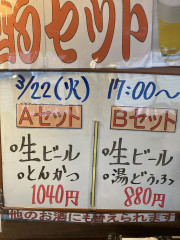 酒セット
3/22(火) 17:00〜
Aセット
○生ビール
○とんかつ
1040円
Bセット
○生ビール
○湯どうふ
880円
他のお酒にも替えられます